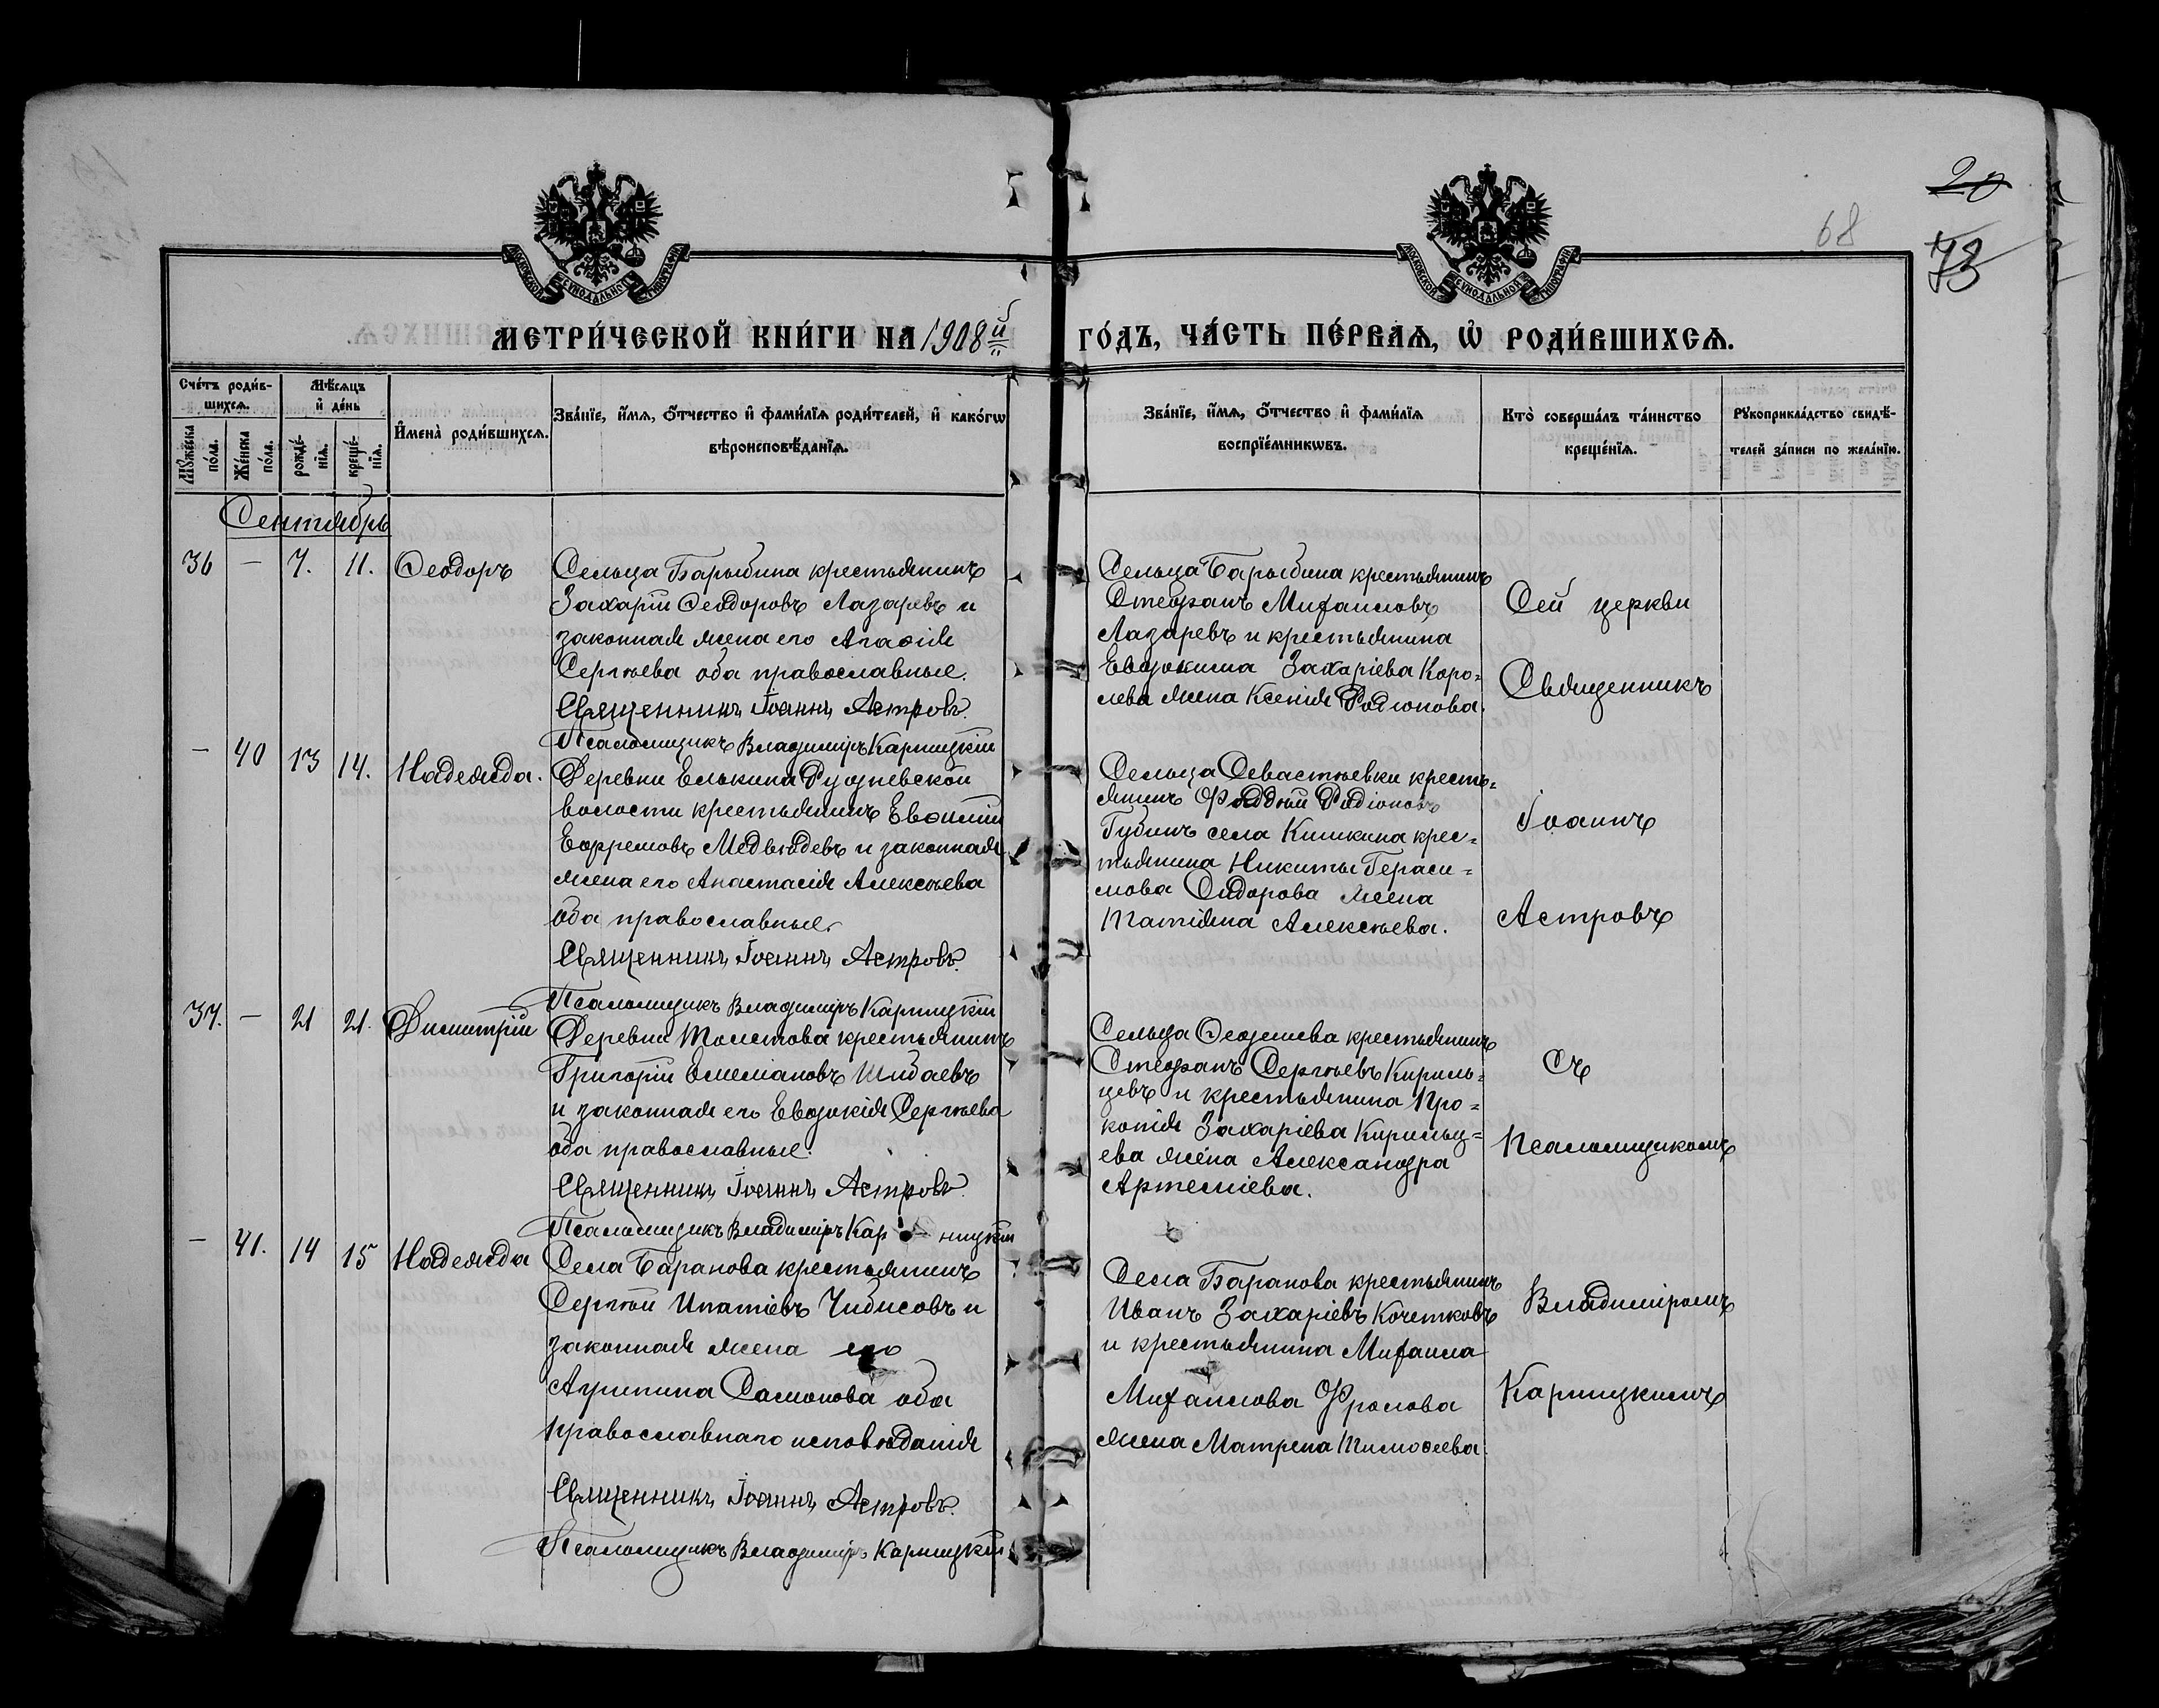 20
68
73
МОСКОВСКОЙ СѴНОДАЛЬНОЙ ТИПОГРАФІИ
МОСКОВСКОЙ СѴНОДАЛЬНОЙ ТИПОГРАФІИ
МЕТРИ́ЧЕСКОЙ КНИ́ГИ НА 1908й
ГО́ДЪ, ЧА́СТЬ ПЕ́РВАѦ, Ѡ҆ РОДИ́ВШИХСѦ.
Сче́тъ роди́в-
шихсѧ.
Мꙋ́жеска по́ла.
Же́нска по́ла.
Мѣ́сѧцъ
и҆ де́нь
рожде́-
нїѧ.
креще́-
нїѧ.
И҆мена̀ роди́вшихсѧ.
Зва́нїе, и҆́мѧ, ѻ҆́тчество и҆ фами́лїѧ роди́телей, и҆ како́гѡ
вѣроисповѣ́данїѧ.
Зва́нїе, и҆́мѧ, ѻ҆́тчество и҆ фами́лїѧ
воспрїе́мникѡвъ.
Кто̀ соверша́лъ та́инство
креще́нїѧ.
Рꙋкоприкла́дство свидѣ́-
телей за́писи по жела́нїю.
Сентябрь
36 — 7. 11. Ѳеодоръ
Сельца Барыбина крестьянинъ
Захарій Ѳеодоровъ Лазаревъ и
законная жена его Агаѳія
Сергѣева оба православные.
Священникъ Іоаннъ Астровъ.
Псаломщикъ Владиміръ Карпицкій
Сельца Барыбина крестьянинъ
Стефанъ Михаиловъ
Лазаревъ и крестьянина
Евдокима Захаріева Коро=
лева жена Ксенія Родіонова.
— 40 13 14. Надежда.
Деревни Елькина Рудневской
волости крестьянинъ Евѳимій
Ефремовъ Медвѣдевъ и законная
жена его Анастасія Алексѣева
оба православные.
Священникъ Іоаннъ Астровъ.
Псаломщикъ Владиміръ Карпицкій
Сельца Севастѣевки кресть=
янинъ Фаддѣй Родіоновъ
Губинъ села Кишкина крес=
тьянина Никиты Гераси=
мова Сидорова жена
Татіяна Алексѣева.
37. — 21 21. Димитрій
Деревни Толстова крестьянинъ
Григорій Емеліановъ Шибаевъ
и законная его Евдокія Сергѣева
оба православные.
Священникъ Іоаннъ Астровъ
Псаломщикъ Владиміръ Карпицкій
Сельца крестьянинъ
Стефанъ Сергѣевъ Кириль=
цевъ и крестьянина Про=
копія Захаріева Кирильц=
ева жена Александра
Артеміева.
— 41. 14 15 Надежда
Села Баранова крестьянинъ
Сергѣй Ипатіевъ Чибисовъ и
законная жена его
Агрипина Самонова оба
православнаго исповѣданія
Священникъ Іоаннъ Астровъ.
Псаломщикъ Владиміръ Карпицкій
Села Баранова крестьянинъ
Иванъ Захаріевъ Кочетковъ
и крестьянина Михаила
Михаилова Фролова
жена Матрена Тимоѳеева.
Сей церкви
Священникъ
Іоаннъ
Астровъ
Съ
Псаломщикомъ
Владиміромъ
Карпицкимъ